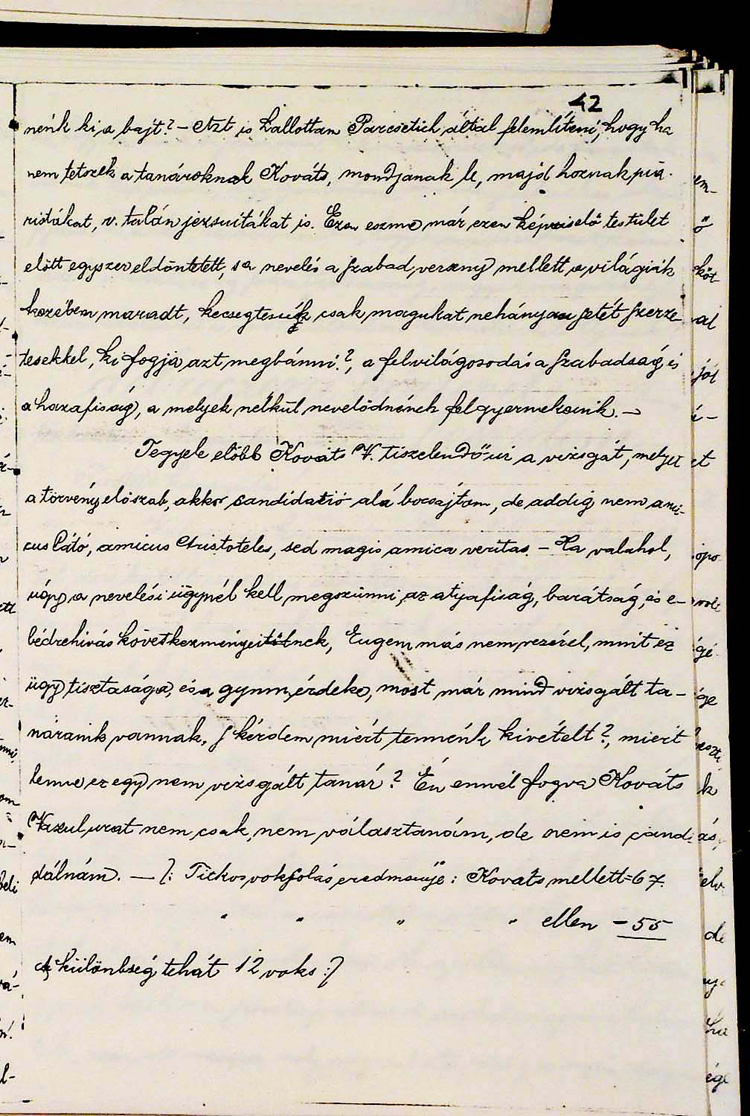 42
nénk ki a bajt? – Azt is hallottam Parcsetich által felemlíteni, hogy ha
nem tetszek a tanároknak Kováts, mondjanak le, majd hoznak pia-
ristákat, v. talán jezsuitákat is. Ezen eszme már ezen képviselő testület
előtt egyszer eldöntetett, s a nevelés a szabad verseny mellett a világiak
kezében maradt, kecsegtessék csak magukat nehányan setét szerze-
tesekkel, ki fogja azt megbánni?, a felvilágosodás a szabadság és
a hazafiság, a melyek nélkül nevelődnének fel gyermekeink. –
Tegyele előbb Kováts V. tisztelendő úr a vizsgát, melyet
a törvény előszab, akkor candidatió alá bocsájtom, de addig nem ami-
cus Pláto, amicus Aristoteles, sed magis amica veritas. – Ha valahol,
úgy a nevelési ügynél kell megszünni az atyafiság, barátság, és e-
bédrehivás következményeinek, Engem más nem vezérel, mint ez
ügy tisztasága, és a gymn. érdeke, most már mind vizsgált ta-
náraink vannak, s kérdem miért tennénk kivételt?, miért
lenne ez egy nem vizsgált tanár? Én ennél fogva Kováts
Vazul urat nem csak nem választanám, de nem is candi-
dálnám. — /: Titkos voksolás eredménye: Kováts mellett = 67.
" " " " ellen – 55
A különbség tehát 12 voks :/